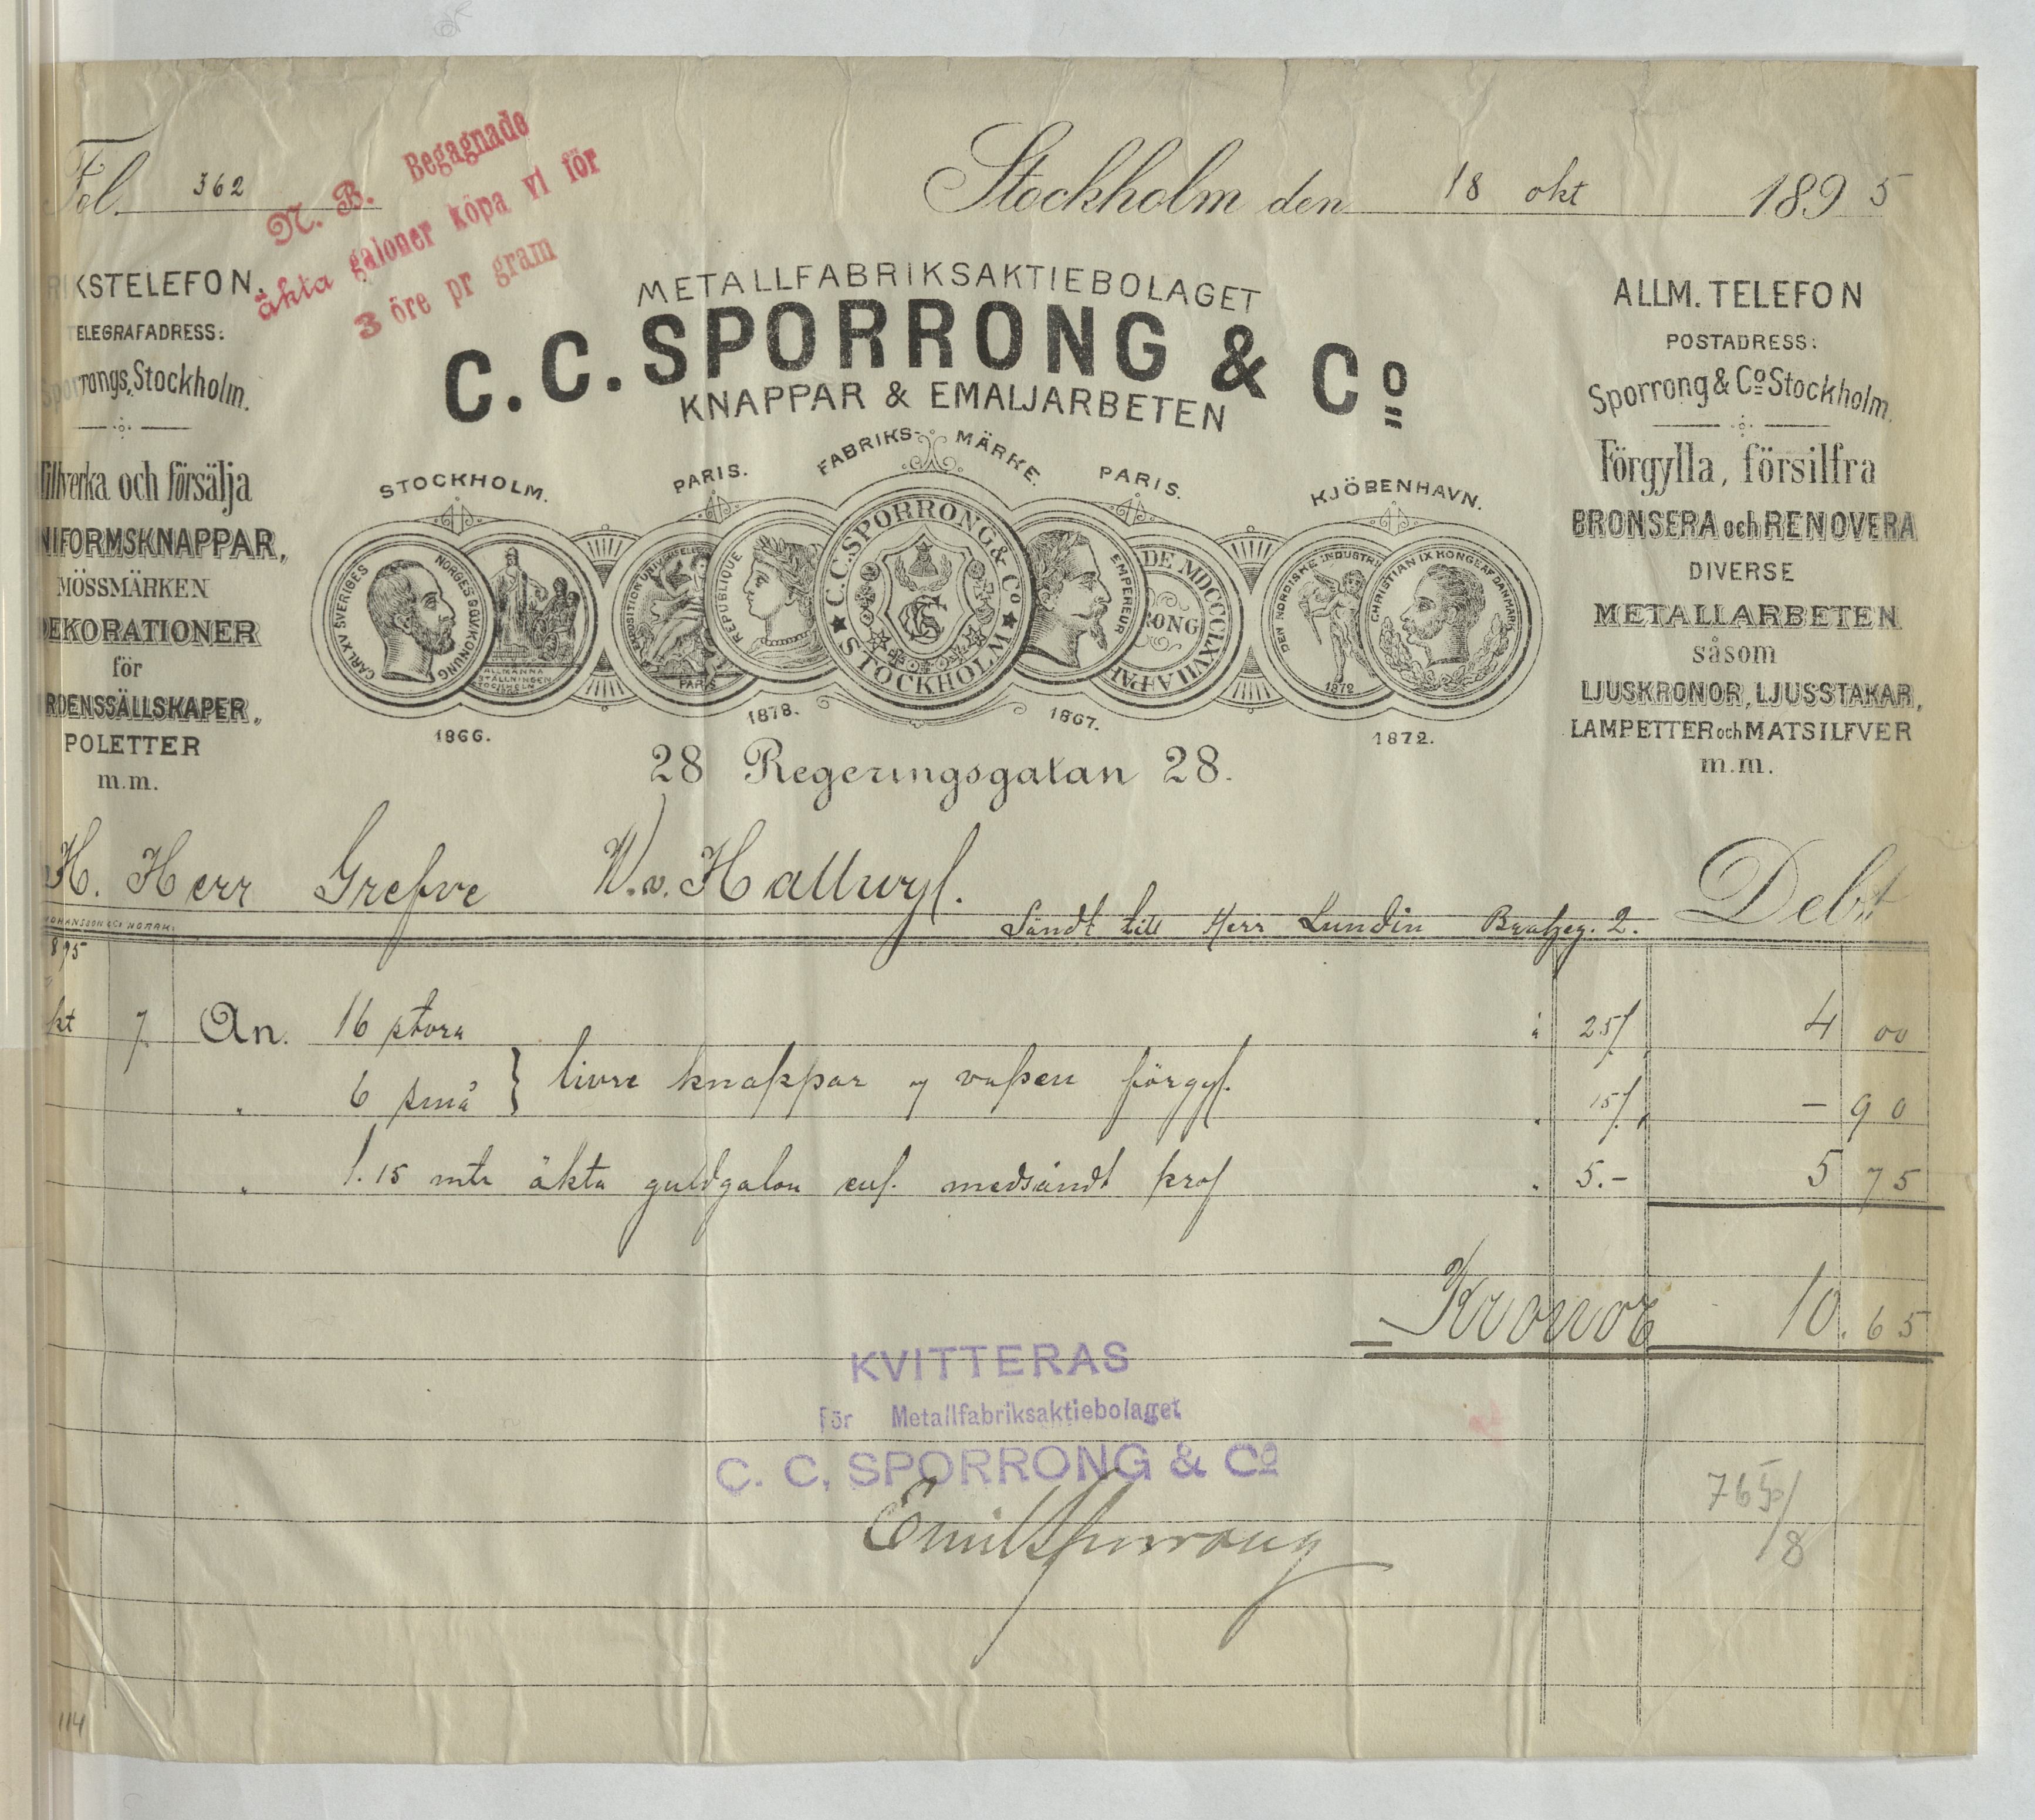 Fol. 362
N. B. Begagnade
äkta galoner köpa vi för
3 öre pr gram
Stockholm den 18 okt 1895
RIKSTELEFON.
TELEGRAFADRESS:
Sporrongs, Stockholm.
Tillverka och försälja
UNIFORMSKNAPPAR,
MÖSSMÄRKEN
DEKORATIONER
för
ORDENSSÄLLSKAPER,
POLETTER
m.m.
METALLFABRIKSAKTIEBOLAGET
C. C. SPORRONG & Co
KNAPPAR & EMALJARBETEN
FABRIKS-MÄRKE.
STOCKHOLM.
PARIS.
PARIS.
KJÖBENHAVN.
CARL XV SVERIGES NORGES G. O. V. KONUNG
PARIS
REPUBLIQUE
C. C. SPORRONG & Co
STOCKHOLM
EMPEREUR
DE MDCCCLXVII
RONG
DEN NORDISKE INDUSTRI
1872
CHRISTIAN IX KONGE AF DANMARK
1866.
1878.
1867.
1872.
28 Regeringsgatan 28.
ALLM. TELEFON
POSTADRESS:
Sporrong & Co Stockholm.
Förgylla, försilfra
BRONSERA och RENOVERA
DIVERSE
METALLARBETEN
såsom
LJUSKRONOR, LJUSSTAKAR,
LAMPETTER och MATSILFVER
m.m.
H. Herr Grefve W. v. Hallwyl. Debet
Sändt till Herr Lundin 2.
895
kt 7 An. 16 stora à 25/ 4 00
" 6 små } livre knappar vapen förgyl. " 15/ – 90
" 1.15 mtr äkta guldgalon enl. medsändt prof " 5.– 5 75
Kronor 10.65
KVITTERAS
För Metallfabriksaktiebolaget
C. C. SPORRONG & Co
Emil Sporrong
8
114